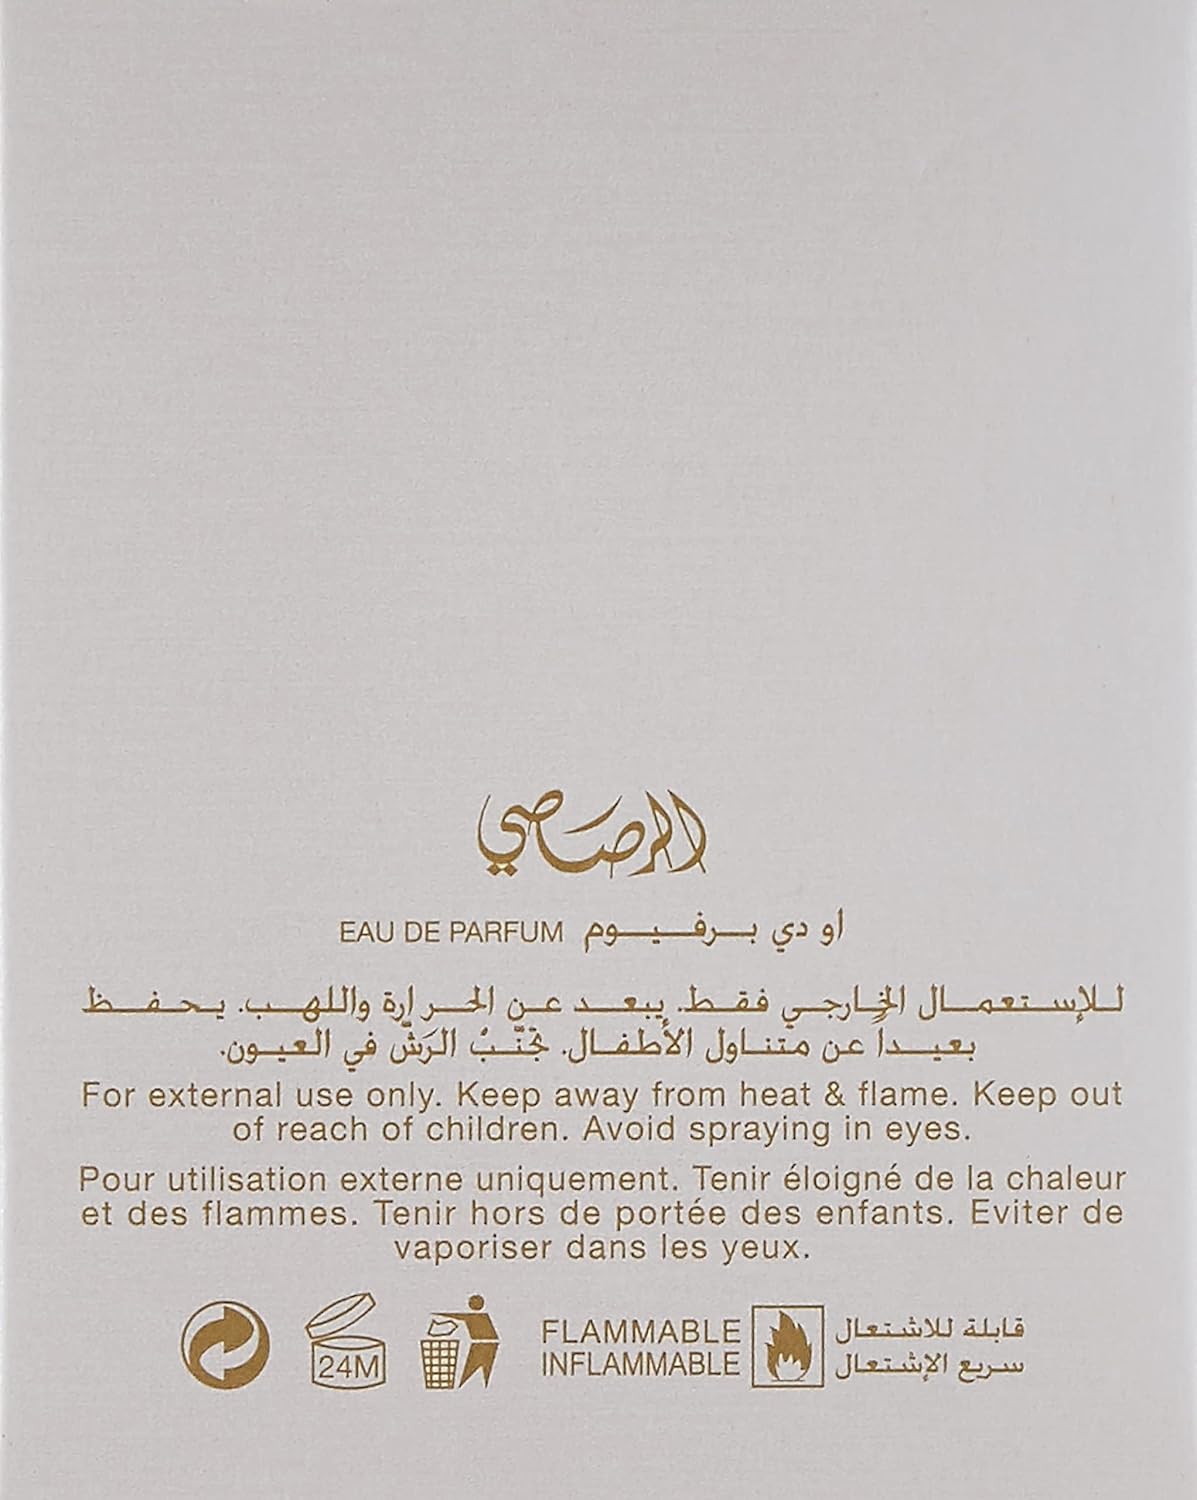 الرصاصي
EAU DE PARFUM او دي برفيوم
للإستعمال الخارجي فقط. يبعد عن الحرارة واللهب. يحفظ
بعيداً عن متناول الأطفال. تجَنّبُ الرَشّ في العيون.
For external use only. Keep away from heat & flame. Keep out
of reach of children. Avoid spraying in eyes.
Pour utilisation externe uniquement. Tenir éloigné de la chaleur
et des flammes. Tenir hors de portée des enfants. Eviter de
vaporiser dans les yeux.
24M
FLAMMABLE قابلة للاشتعال
INFLAMMABLE سريع الإشتعال